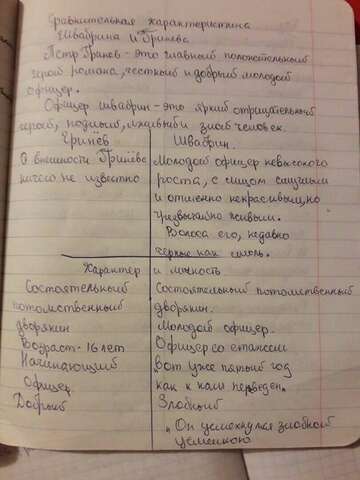 Сравнительная характеристика
Швабрина и Гринёва
Пётр Гринев - это главный положительный
герой романа, честный и добрый молодой
офицер.
Офицер Швабрин - это яркий отрицательный
герой, подлый, лживый и злой человек.
Гринёв
О внешности Гринёва
ничего не известно
Швабрин.
Молодой офицер невысокого
роста, с лицом смуглым
и отменно некрасивым, но
чрезвычайно живым.
Волоса его, недавно
черные как смоль.
Характер и личность
Состоятельный
потомственный
дворянин
Возраст - 16 лет
Начинающий
офицер
Добрый
Состоятельный потомственный
дворянин.
Молодой офицер.
Офицер со стажем
вот уже пятый год
как к нам переведен.
Злобный
"Он усмехнулся злобной
усмешкою